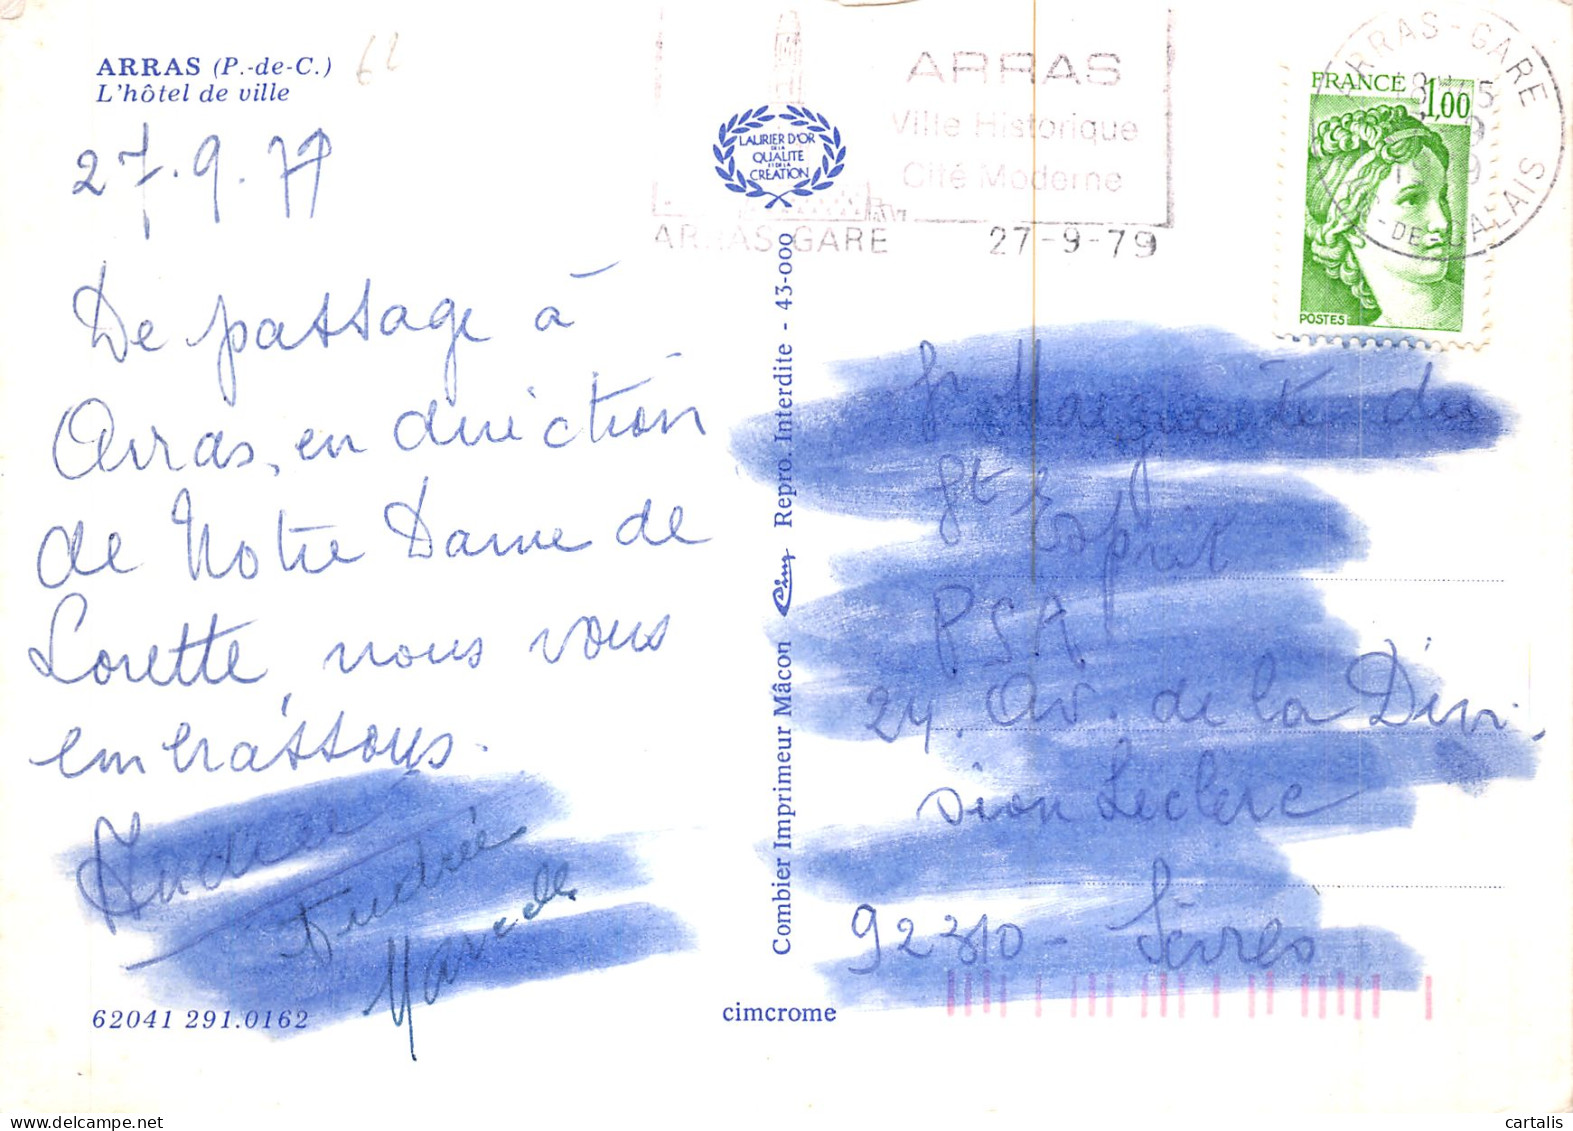 ARRAS (P.-de-C.) 62
L'hôtel de ville
27.9.79
De passage à
Arras, en direction
de Notre Dame de
Lorette, nous vous
embrassons.
Andrée
Andrée
62041 291.0162
ARRAS
Ville Historique
Cité Moderne
ARRAS GARE 27-9-79
LAURIER D'OR
DE LA
QUALITE
ET DE LA
CREATION
Combier Imprimeur Mâcon Cim Repro. Interdite - 43-000
cimcrome
ARRAS-GARE
PAS-DE-CALAIS
FRANCE 1,00
POSTES
Sr Marguerite du
St Esprit
PSA
24 Av. de la Divi-
sion Leclerc
92310 - Sèvres
cartalis
www.delcampe.net